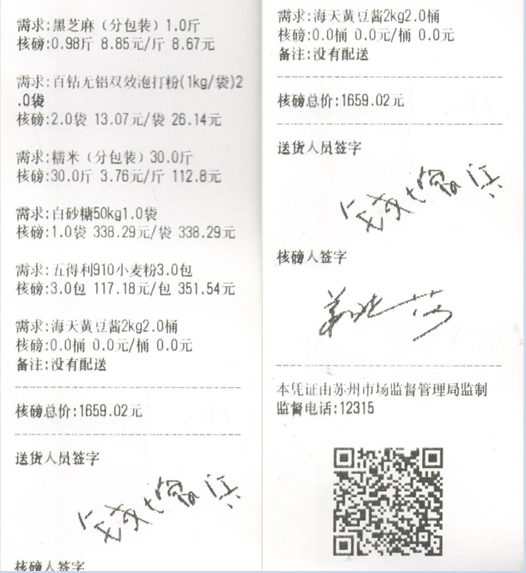 需求:黑芝麻（分包装）1.0斤
核磅:0.98斤 8.85元/斤 8.67元
需求:百钻无铝双效泡打粉(1kg/袋)2
.0袋
核磅:2.0袋 13.07元/袋 26.14元
需求:糯米（分包装）30.0斤
核磅:30.0斤 3.76元/斤 112.8元
需求:白砂糖50kg1.0袋
核磅:1.0袋 338.29元/袋 338.29元
需求:五得利910小麦粉3.0包
核磅:3.0包 117.18元/包 351.54元
需求:海天黄豆酱2kg2.0桶
核磅:0.0桶 0.0元/桶 0.0元
备注:没有配送
核磅总价:1659.02元
送货人员签字
核磅人签字
需求:海天黄豆酱2kg2.0桶
核磅:0.0桶 0.0元/桶 0.0元
备注:没有配送
核磅总价:1659.02元
送货人员签字
核磅人签字
本凭证由苏州市场监督管理局监制
监督电话:12315